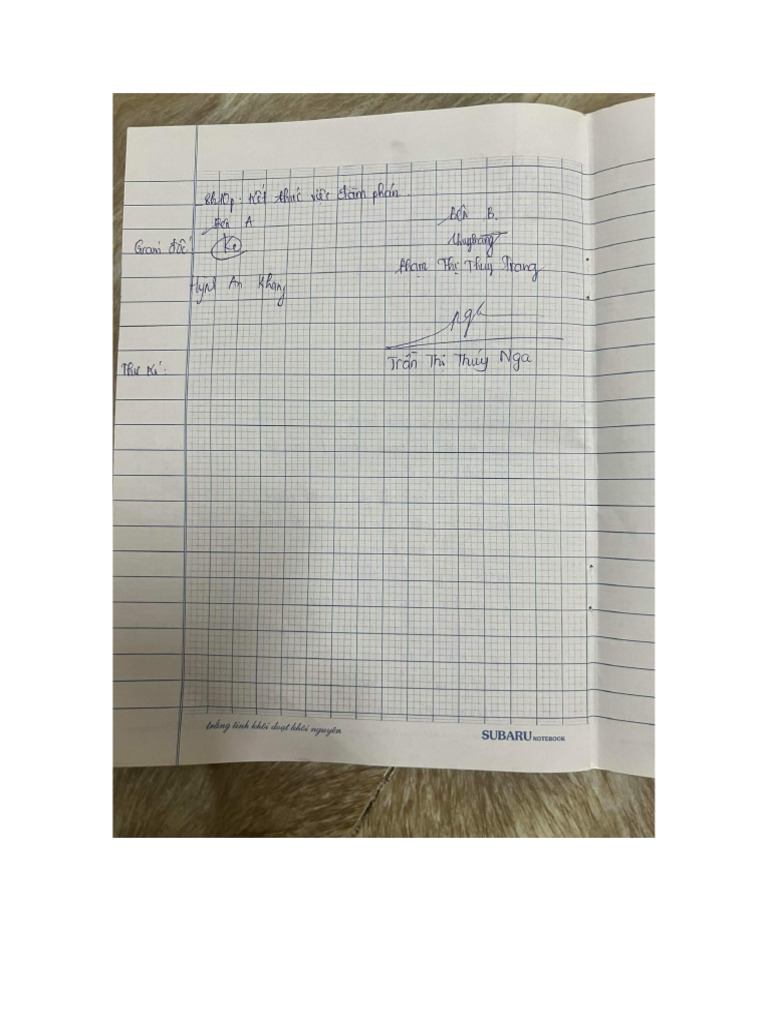 8h10p: Kết thúc việc đàm phán.
Bên A
Bên B.
Giám đốc:
Phạm Thị Thùy Trang
Huỳnh An Khang
Nga
Trần Thị Thúy Nga
Thư kí:
trắng tinh khôi đoạt khôi nguyên
SUBARU NOTEBOOK